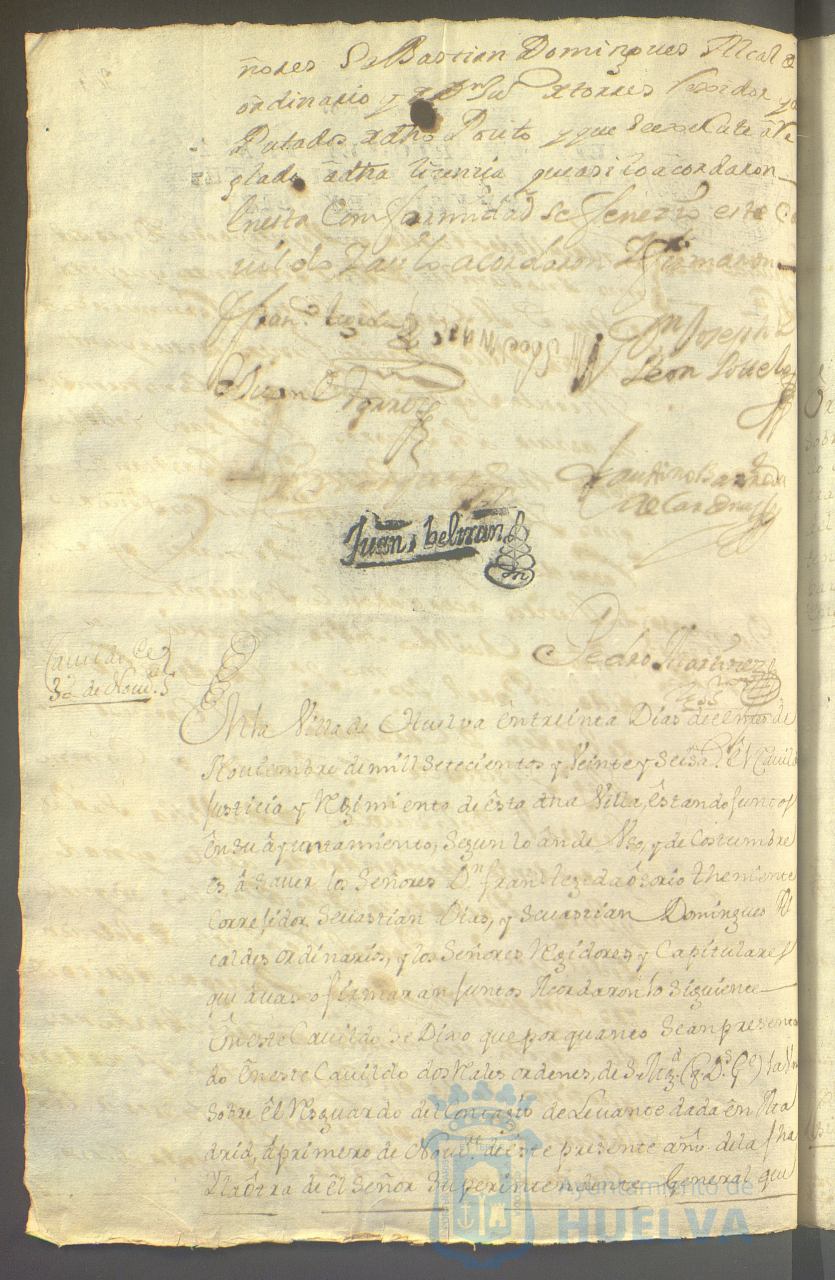 ñores Sebastian Domingues Alcalde
ordinario y Torres Residor y
Putados de dho Posito y que
glado a dha licencia que asi lo acordaron
En esta Comformidad se feneçio este Ca
uildo y assi lo acordaron y firmaron
Juan
Dn Joseph
Leon
Faustino Barreda
de Cardenas
Juan beltran
Pedro Martinez
Cauildo de
30 de Nou.e
En la Villa de Huelva en treinta Dias del mes de
Nouiembre de mill Setecientos y Veinte y Seis a.s el Cauildo
Justicia y Reximiento de esta dha Villa, estando juntos
En su ayuntamiento, Segun lo an de Uso, y de Costumbre
es a Sauer los Señores Dn fran. lezeda osorio theniente
Corresidor Seuastian Dias, y Seuastian Domingues Al
caldes ordinarios, y los Señores Rexidores y Capitulares
qui auaxo firmaran juntos Acordaron lo Siguiente
En este Cauildo Se Dixo que por quanto Se an presenta
do En este Cauildo dos Reales ordenes, de S. Mag.d (q. D.s G.e) la Una
Sobre el Resguardo del Contagio de Leuante dada en Ma
drid, a primero de Nou.e de este presente año de la fha
Y la otra de el Señor Superintendente General que
Ayuntamiento de
HUELVA